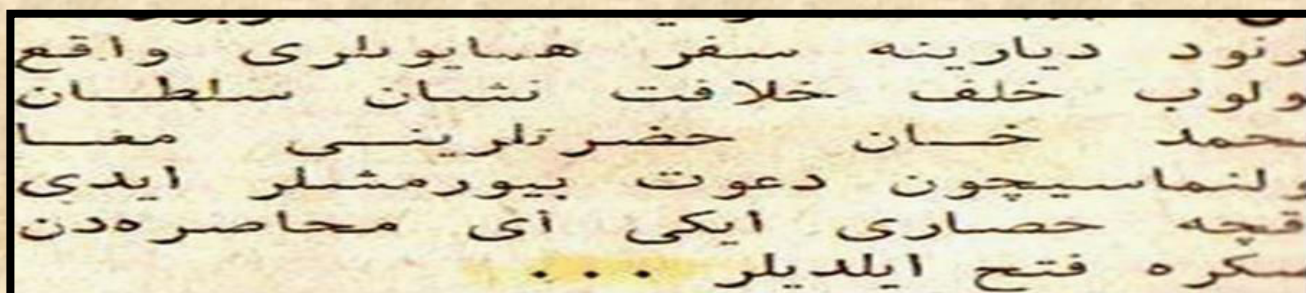 رنود ديارينه سفر همايونلرى واقع
ولوب خلف خلافت نشان سلطان
حمد خان حضرتلرينى معا
ولنماسيچون دعوت بيورمشلر ايدى
قچه حصارى ايكى آى محاصره‌دن
سكره فتح ايلديلر ...